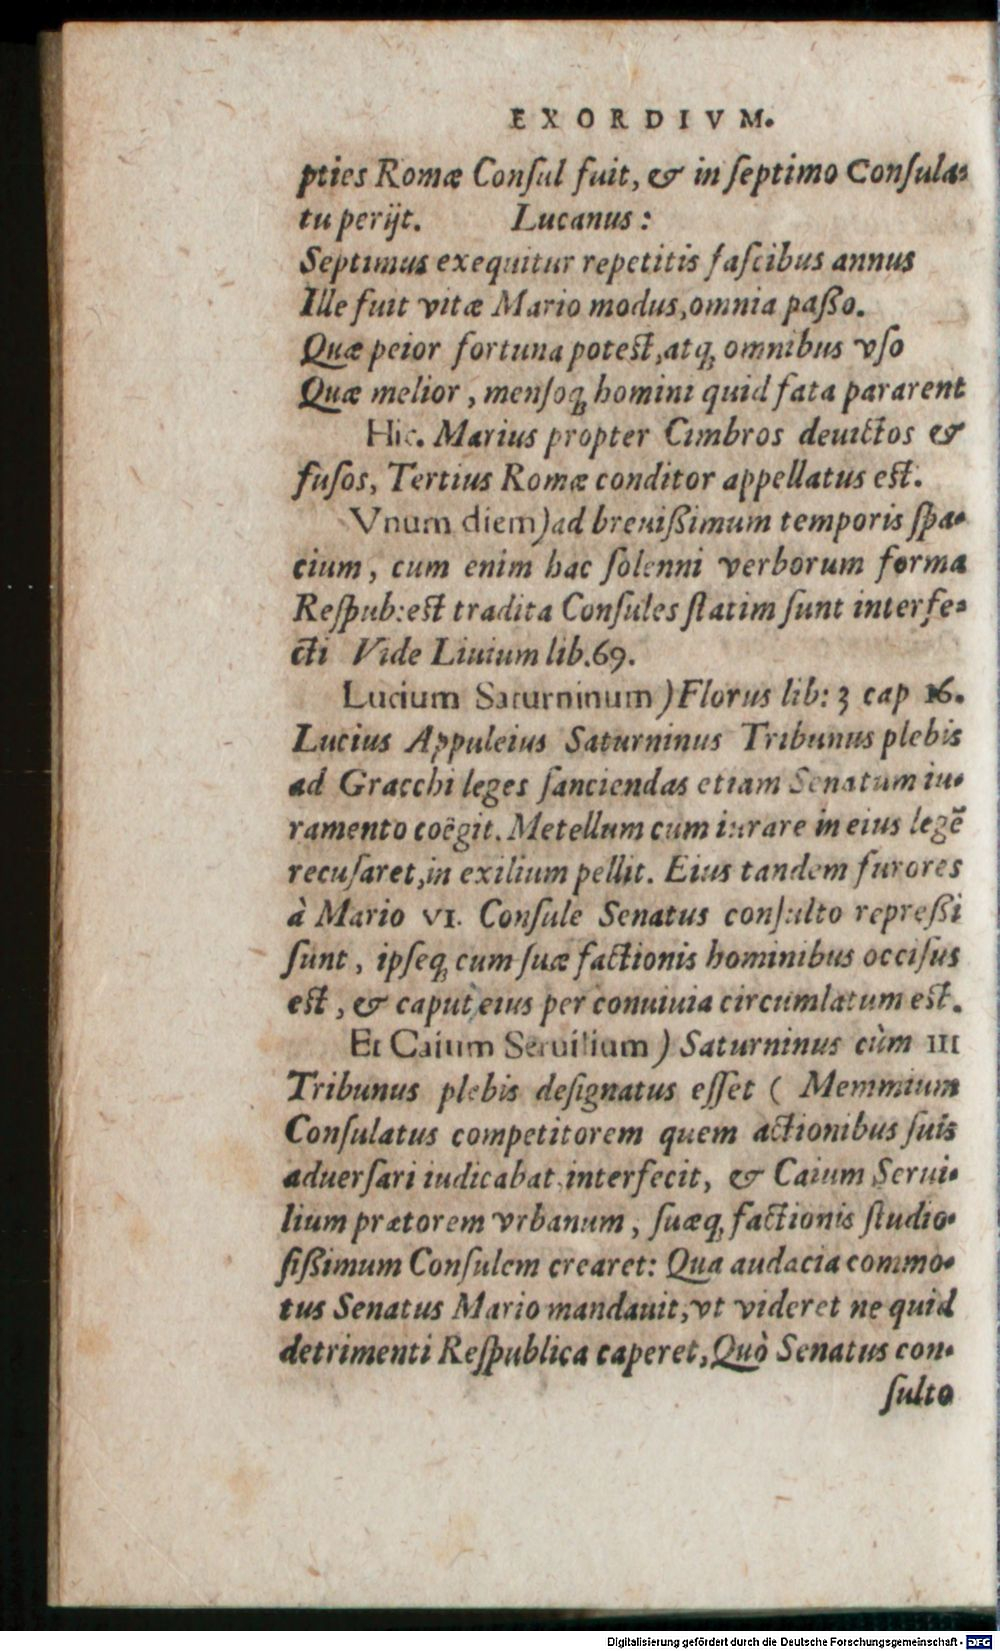 EXORDIVM.
pties Romæ Conſul fuit, & in ſeptimo Conſula⸗
tu perijt. Lucanus:
Septimus exequitur repetitis faſcibus annus
Ille fuit vitæ Mario modus, omnia paßo.
Quæ peior fortuna potest, atq; omnibus vſo
Quæ melior, menſoq; homini quid fata pararent
Hic. Marius propter Cimbros deuictos &
fuſos, Tertius Romæ conditor appellatus est.
Vnum diem) ad breuißimum temporis ſpa⸗
cium, cum enim hac ſolenni verborum forma
Reſpub: est tradita Conſules ſtatim ſunt interfe⸗
cti Vide Liuium lib. 69.
Lucium Saturninum) Florus lib: 3 cap 16.
Lucius Appuleius Saturninus Tribunus plebis
ad Gracchi leges ſanciendas etiam Senatum iu⸗
ramento coëgit. Metellum cum iurare in eius legē
recuſaret, in exilium pellit. Eius tandem furores
à Mario VI. Conſule Senatus conſulto repreßi
ſunt, ipſeq; cum ſuæ factionis hominibus occiſus
est, & caput eius per conuiuia circumlatum est.
Et Caium Seruilium) Saturninus cùm III
Tribunus plebis deſignatus eſſet ( Memmium
Conſulatus competitorem quem actionibus ſuis
aduerſari iudicabat interfecit, & Caium Serui⸗
lium prætorem vrbanum, ſuæq; factionis ſtudio⸗
ſißimum Conſulem crearet: Qua audacia commo⸗
tus Senatus Mario mandauit, vt videret ne quid
detrimenti Reſpublica caperet, Quò Senatus con⸗
ſulto
Digitalisierung gefördert durch die Deutsche Forschungsgemeinschaft - DFG